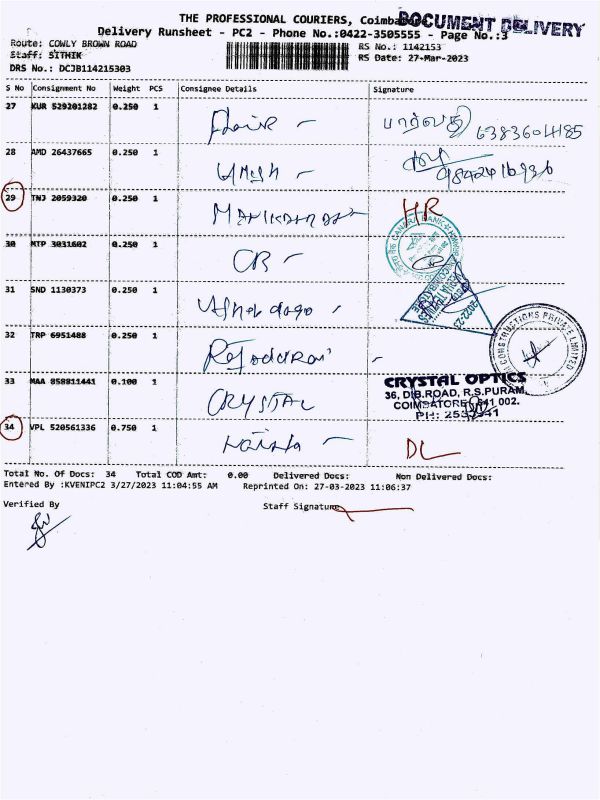 THE PROFESSIONAL COURIERS, Coimbatore
DOCUMENT DELIVERY
Delivery Runsheet - PC2 - Phone No.:0422-3505555 - Page No.:3
Route: COWLY BROWN ROAD
RS No.: 1142153
Staff: SITHIK
RS Date: 27-Mar-2023
DRS No.: DCJB114215303
S No Consignment No Weight PCS Consignee Details Signature
27 KUR 529201282 0.250 1 பார்வதி 6383604485
28 AMD 26437665 0.250 1
29 TNJ 2059320 0.250 1 HR
CANARA BANK
30 MTP 3031602 0.250 1 CB
2022-23
31 SND 1130373 0.250 1
32 TRP 6951488 0.250 1
CONSTRUCTIONS PRIVATE LIMITED
33 MAA 858811441 0.100 1 CRYSTAL
CRYSTAL OPTICS
36, D.B.ROAD, R.S.PURAM,
COIMBATORE-641 002.
34 VPL 520561336 0.750 1 DL
Total No. Of Docs: 34 Total COD Amt: 0.00 Delivered Docs: Non Delivered Docs:
Entered By :KVENIPC2 3/27/2023 11:04:55 AM Reprinted On: 27-03-2023 11:06:37
Verified By Staff Signature